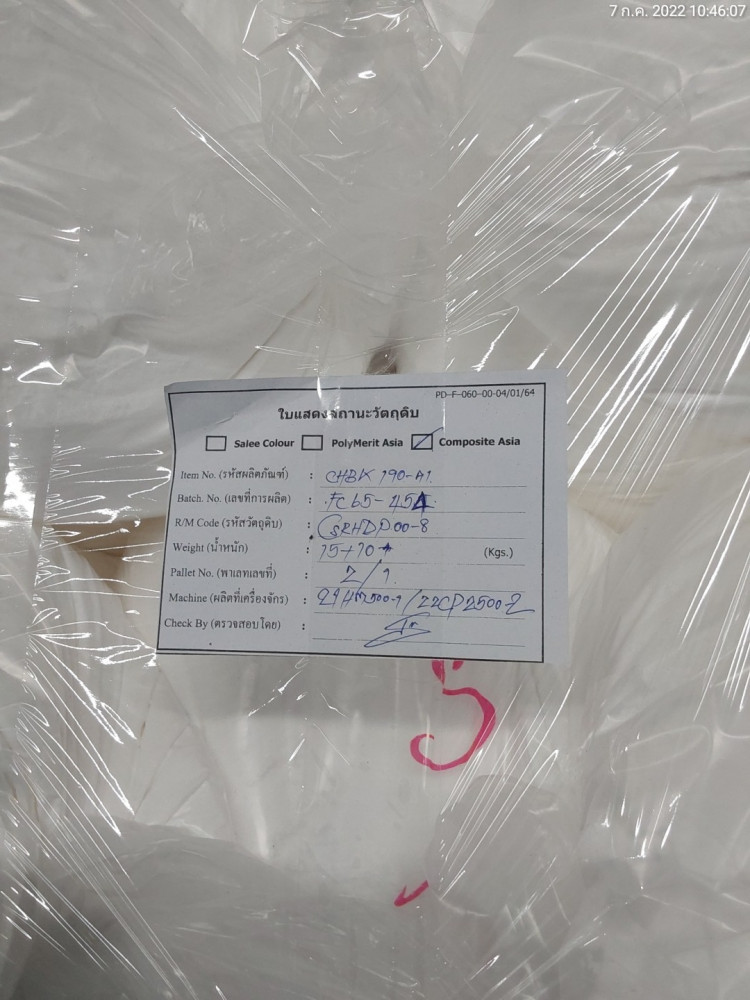 7 ก.ค. 2022 10:46:07
PD-F-060-00-04/01/64
ใบแสดงสถานะวัตถุดิบ
Salee Colour PolyMerit Asia Composite Asia
Item No. (รหัสผลิตภัณฑ์) : CHBK 190-A1
Batch. No. (เลขที่การผลิต) : FC65-454
R/M Code (รหัสวัตถุดิบ) : CSRHDP00-8
Weight (น้ำหนัก) : (Kgs.)
Pallet No. (พาเลทเลขที่) : 2/1
Machine (ผลิตที่เครื่องจักร) : /22CP2500-2
Check By (ตรวจสอบโดย) :
5